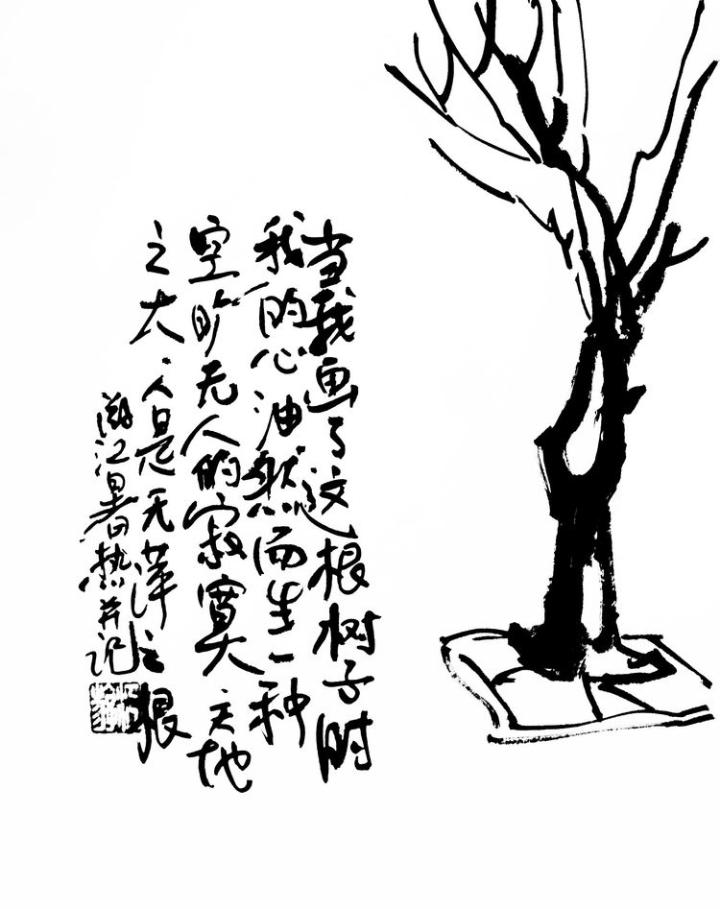 当我画了这根树子时
我的心油然而生一种
空旷无人的寂寞 天地
之大、人是无萍之根
江暑热并记